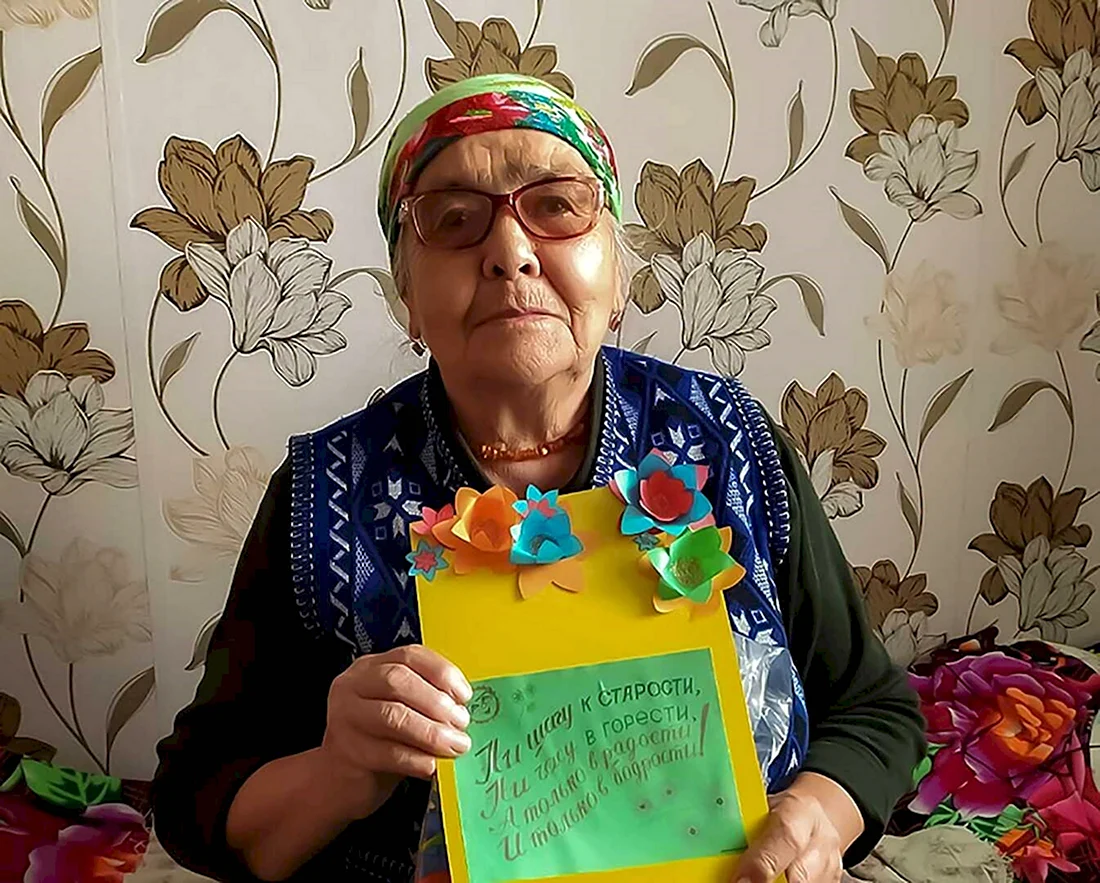 Ни шагу к СТАРОСТИ,
Ни часу в ГОРЕСТИ,
А только в радости
И только в бодрости!